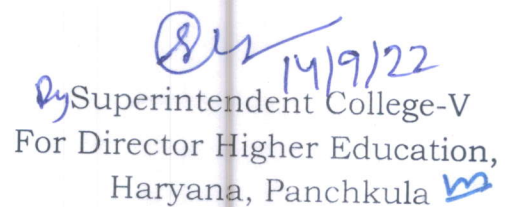 14/9/22
Dy Superintendent College-V
For Director Higher Education,
Haryana, Panchkula